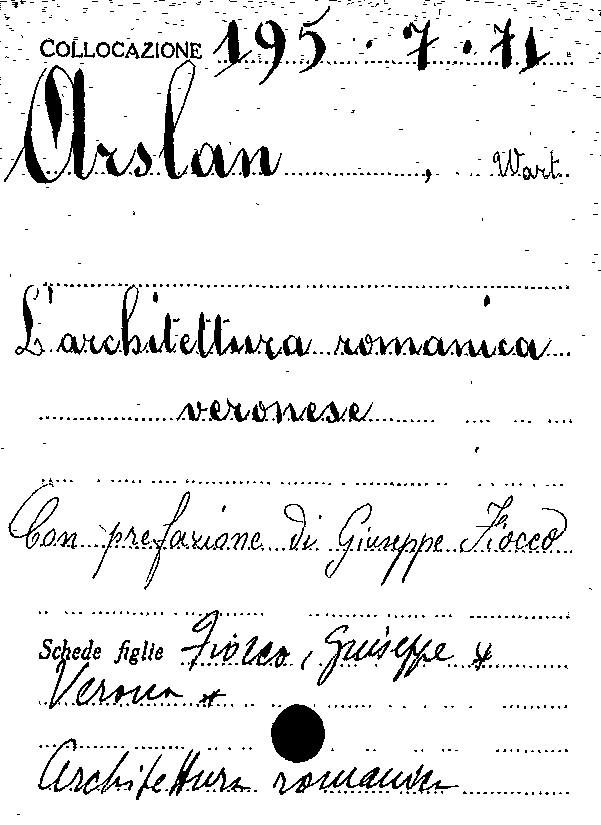 COLLOCAZIONE 195.7.71
Arslan, Wart
L'architettura romanica
veronese
Con prefazione di Giuseppe Fiocco
Schede figlie Fiocco, Giuseppe *
Verona *
Architettura romanica